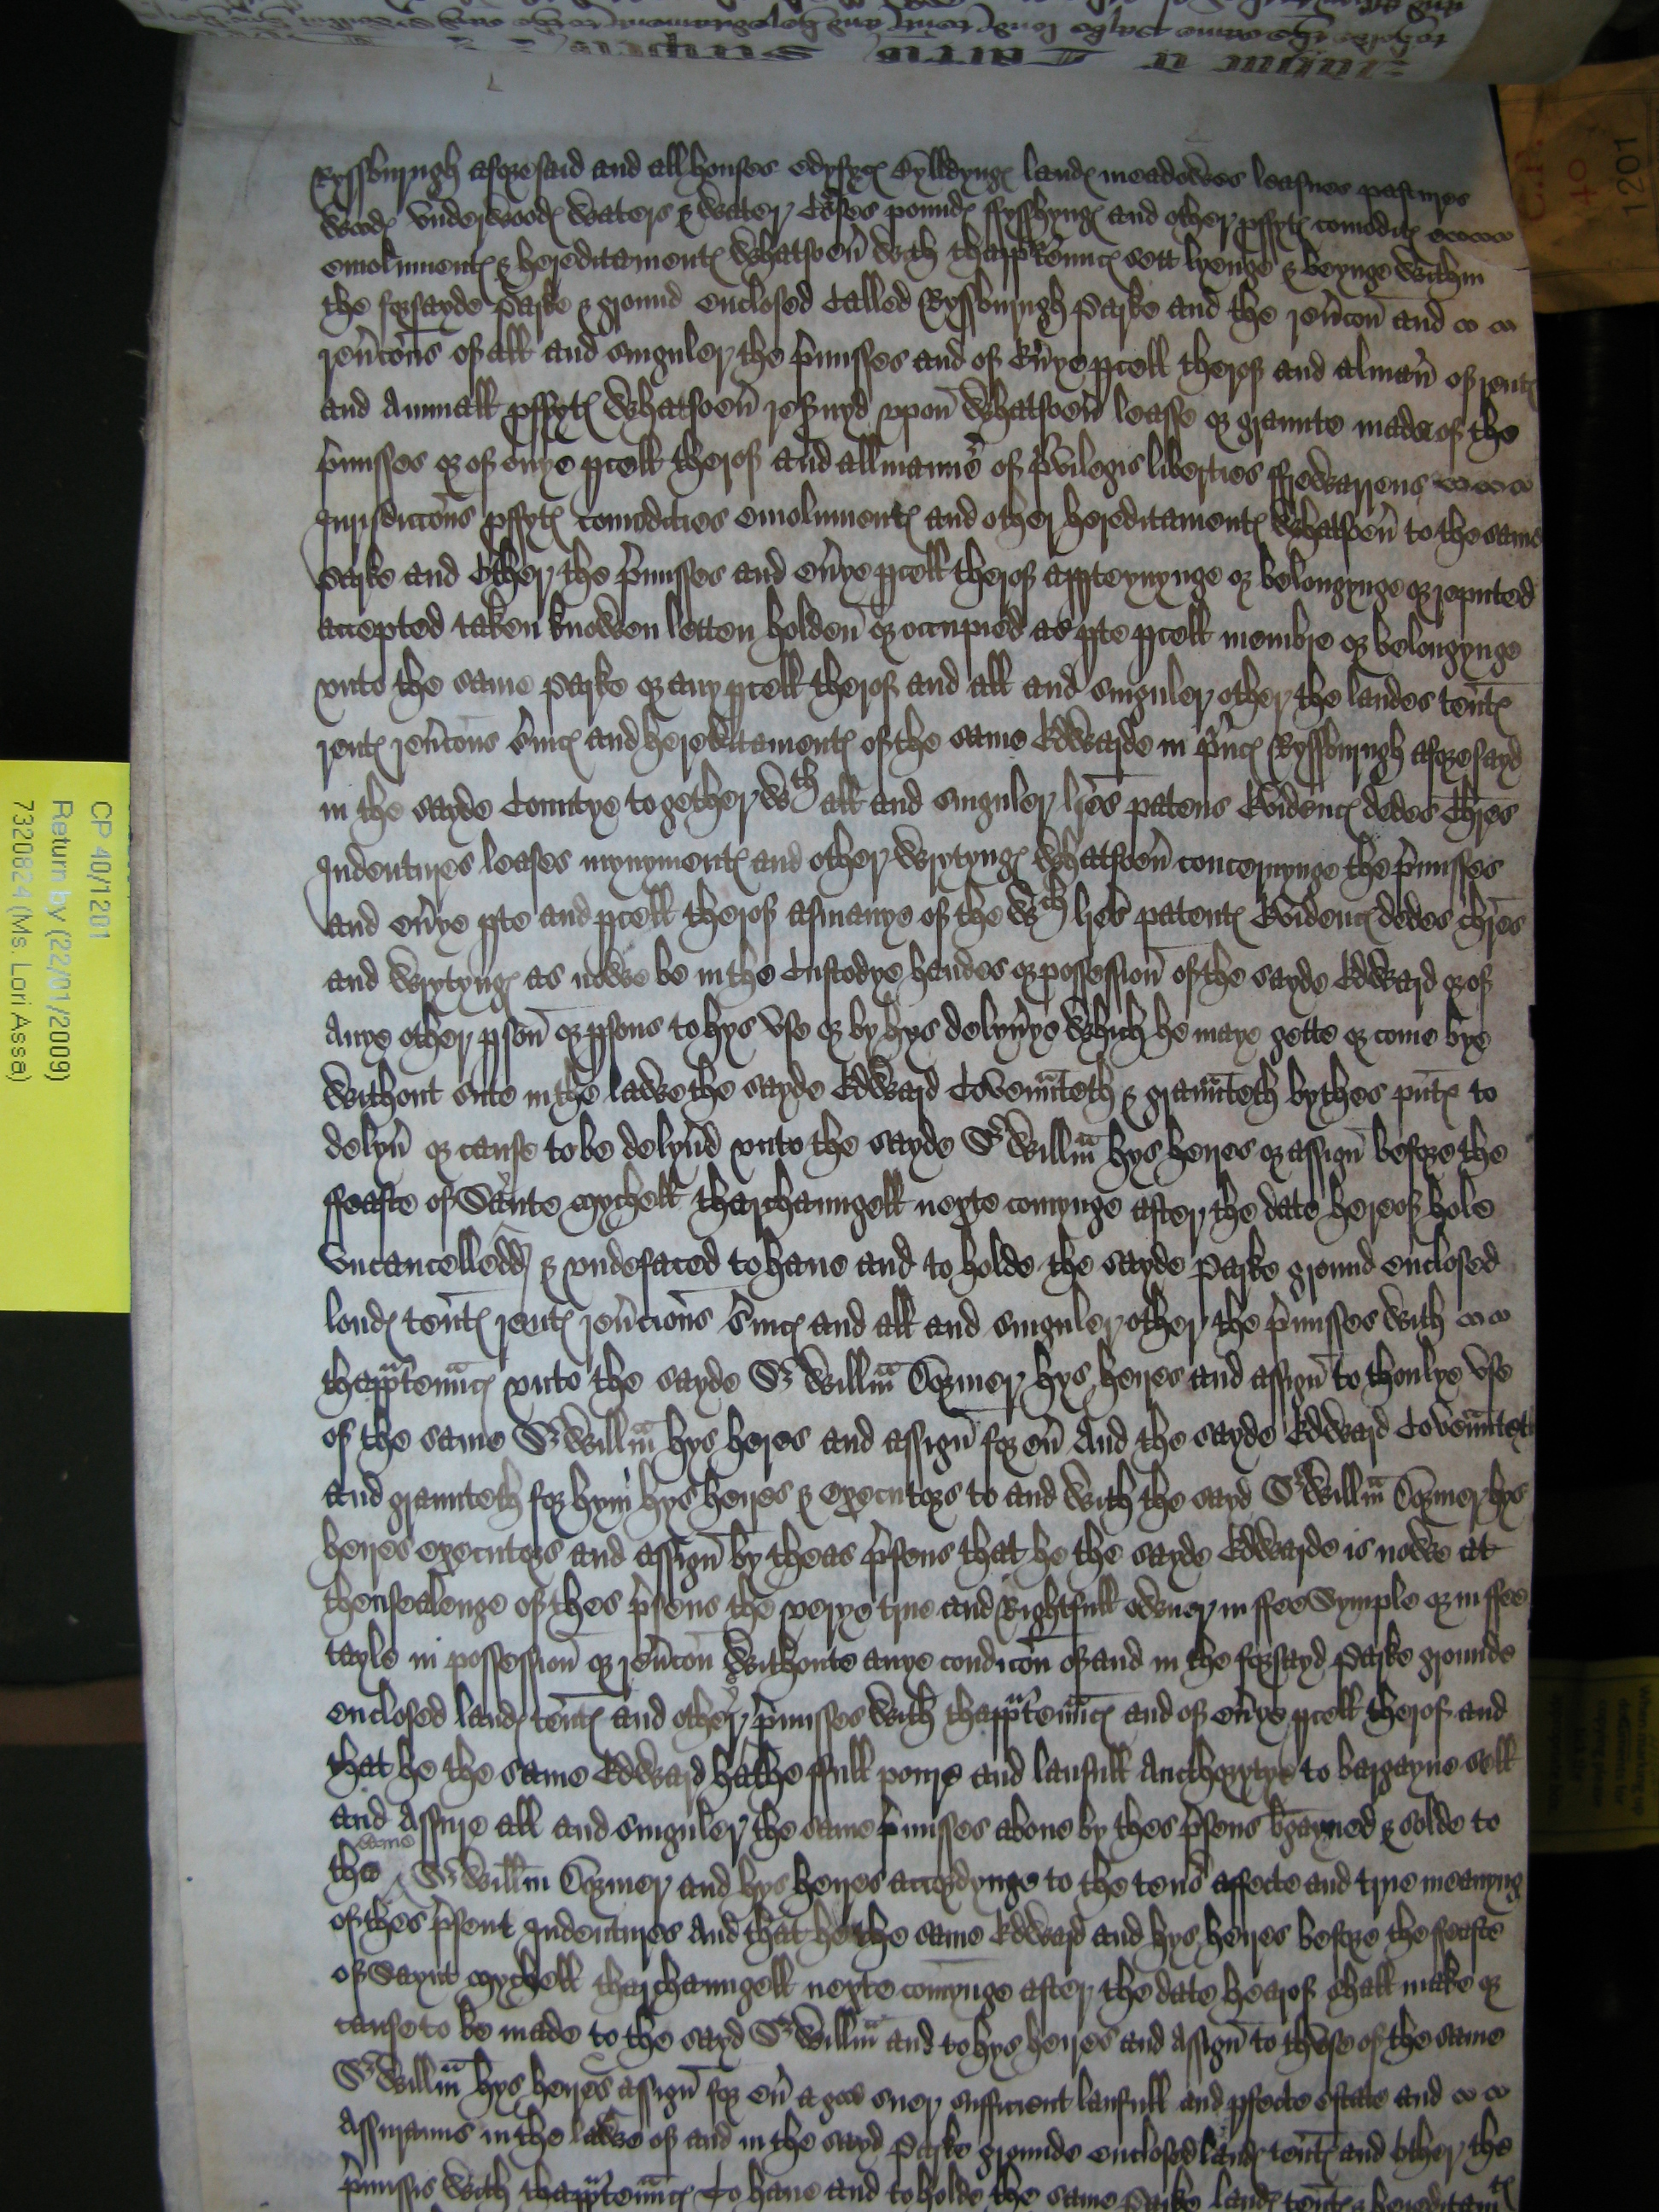 Ryssburgh aforesaid and all houses edyfyc̄ Bylldyng landℯ meadowes leasues pastures
woodℯ underwoodℯ waters & water Coses poundℯ ffysshyngℯ and other pffytℯ comoditℯ
emolumentℯ & hereditamentℯ whatsoeu̕ with thapp̕tenncℯ sett lyenge & beynge within
the forsayde Parke & ground enclosed Called Ryssburgh Parke and the reu̕con̄ and
reu̕cōns of all and singuler the p̕misses and of eu̕ye pcell therof and alman̕ of rentℯ
and Annuall pffytℯ whatsoeu̕ reseruyd vpon whatsoeu̕ leasse or graunte made of the
p̕misses or of eu̕ye pcell therof and allmann̕s of p̕vilegis liberties ffrewarrens
Jurisdiccōns pffytℯ comodities emolumentℯ and other hereditamentℯ whatsoeu̕ to the same
Parke and Other the p̕misses and eu̕ye pcell therof appteynynge or belongynge or reputed
accepted taken knowen letten holden or occupied as pte pcell membre or belongynge
vnto the same Parke or any pcell therof and all and singuler other the landes ten̄tℯ
rentℯ reu̕cōns s̕uicℯ and hereditamentℯ of the same Edwarde in p̕ncℯ Ryssburgh aforesayd
in the sayde Countye together wth all and singuler l̄res patens Evidencℯ dedes Chr̄es
Indentures leases mynymentℯ and other wrytyngℯ whatsoeu̕ concernynge the p̕misses
and eu̕ye pte and pcell therof asmanye of the wch l̄res patentℯ Evidencℯ dedes chr̄es
and wrytyngℯ as nowe be in the Custodye handes or possession of the sayde Edward or of
Anye other pson or psons to hys vse or by hys delyu̕ye which he maye gette or come bye
without sute in the lawe the sayde Edward Coven̄nteth & graunteth by thes pn̄tℯ to
delyu̕ or cause to be delyu̕d vnto the sayde Sr Willm̄ hys heyres or assign̄ before the
ffeaste of Saynte Mychell tharchaungell nexte comynge after the date hereof hole
Vncancelledd & vndefaced to haue and to holde the sayde Parke ground enclosed
londℯ ten̄tℯ rentℯ reu̕cions s̕uicℯ and all and singuler other the p̕misses with
thapp̕tenn̄cℯ vnto the sayde Sr Willm̄ Dormer hys heyres and assign̄ to thonlye vse
of the same Sr Willm̄ hys heires and assign̄ for eu̕ And the sayde Edward Coven̄nteth
and graunteth for hym hys heyres & executors to and with the sayd Sr Willm̄ Dormer hys
heyres executors and assign̄ by theas p̕sens that he the sayde Edwarde is nowe at
thensealenge of thes p̕sens the verye true and Rightfull owner in ffee Symple or in ffee
tayle in possession or reu̕con̄ withoute anye condicōn of and in the forsayd Parke grounde
enclosed landℯ ten̄tℯ and other p̕misses with thapp̕tenn̄cℯ and of eu̕ye pcell therof and
that he the same Edward hathe ffull power and laufull Aucthorytye to bargayne sell
and Assure all and singuler the same p̕misses aboue by thes p̕sens bgayned & solde to
the same Sr Willm̄ Dormer and hys heyres accordynge to the ten̕ effecte and true meanyng
of thes p̕sent Indentures And that he the same Edward and hys heyres before the ffeaste
of Saynt Mychell tharchaungell nexte comynge after the date hearof shall make or
cause to be made to the sayd Sr Willm̄ and to hys heyres and Assign̄ to thuse of the same
Sr Willm̄ hys heyres assign̄ for eu̕ a good suer sufficient laufull and pfecte estate and
Assuraunce in the lawe of and in the sayd Parke grounde enclosed landℯ ten̄tℯ and other the
p̕missis with thapp̕tenn̄cℯ To haue and to holde the same Parke landℯ ten̄tℯ & hereditamtℯ
C.P.
40
1201
CP 40/1201
Return by (22/01/2009)
7320824 (Ms. Lori Assa)